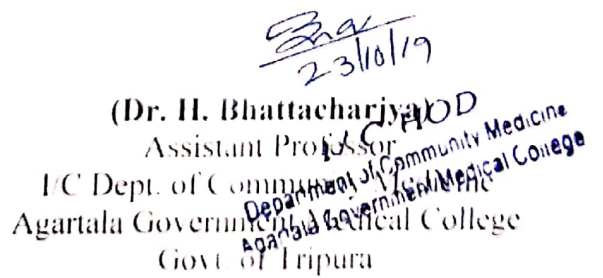 23/10/19
(Dr. H. Bhattacharjya)
Assistant Professor
I/C Dept. of Community Medicine
Agartala Government Medical College
Govt. of Tripura
I/C HOD
Department of Community Medicine
Agartala Government Medical College